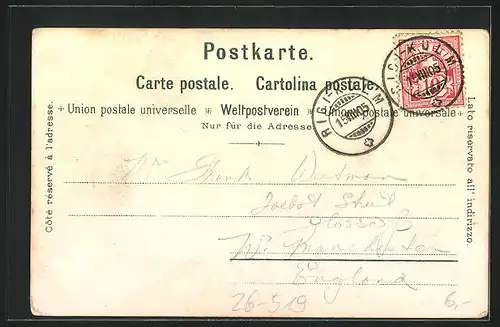 Postkarte.
Carte postale. Cartolina postale.
+ Union postale universelle * Weltpostverein * Union postale universale +
Nur für die Adresse.
Côté réservé à l'adresse.
Lato riservato all' indirizzo.
RIGI-KULM
15 VIII 05
RIGI-KULM
15 VIII 05
Mr Frank
Nr Manchester
England
26-519
6,-